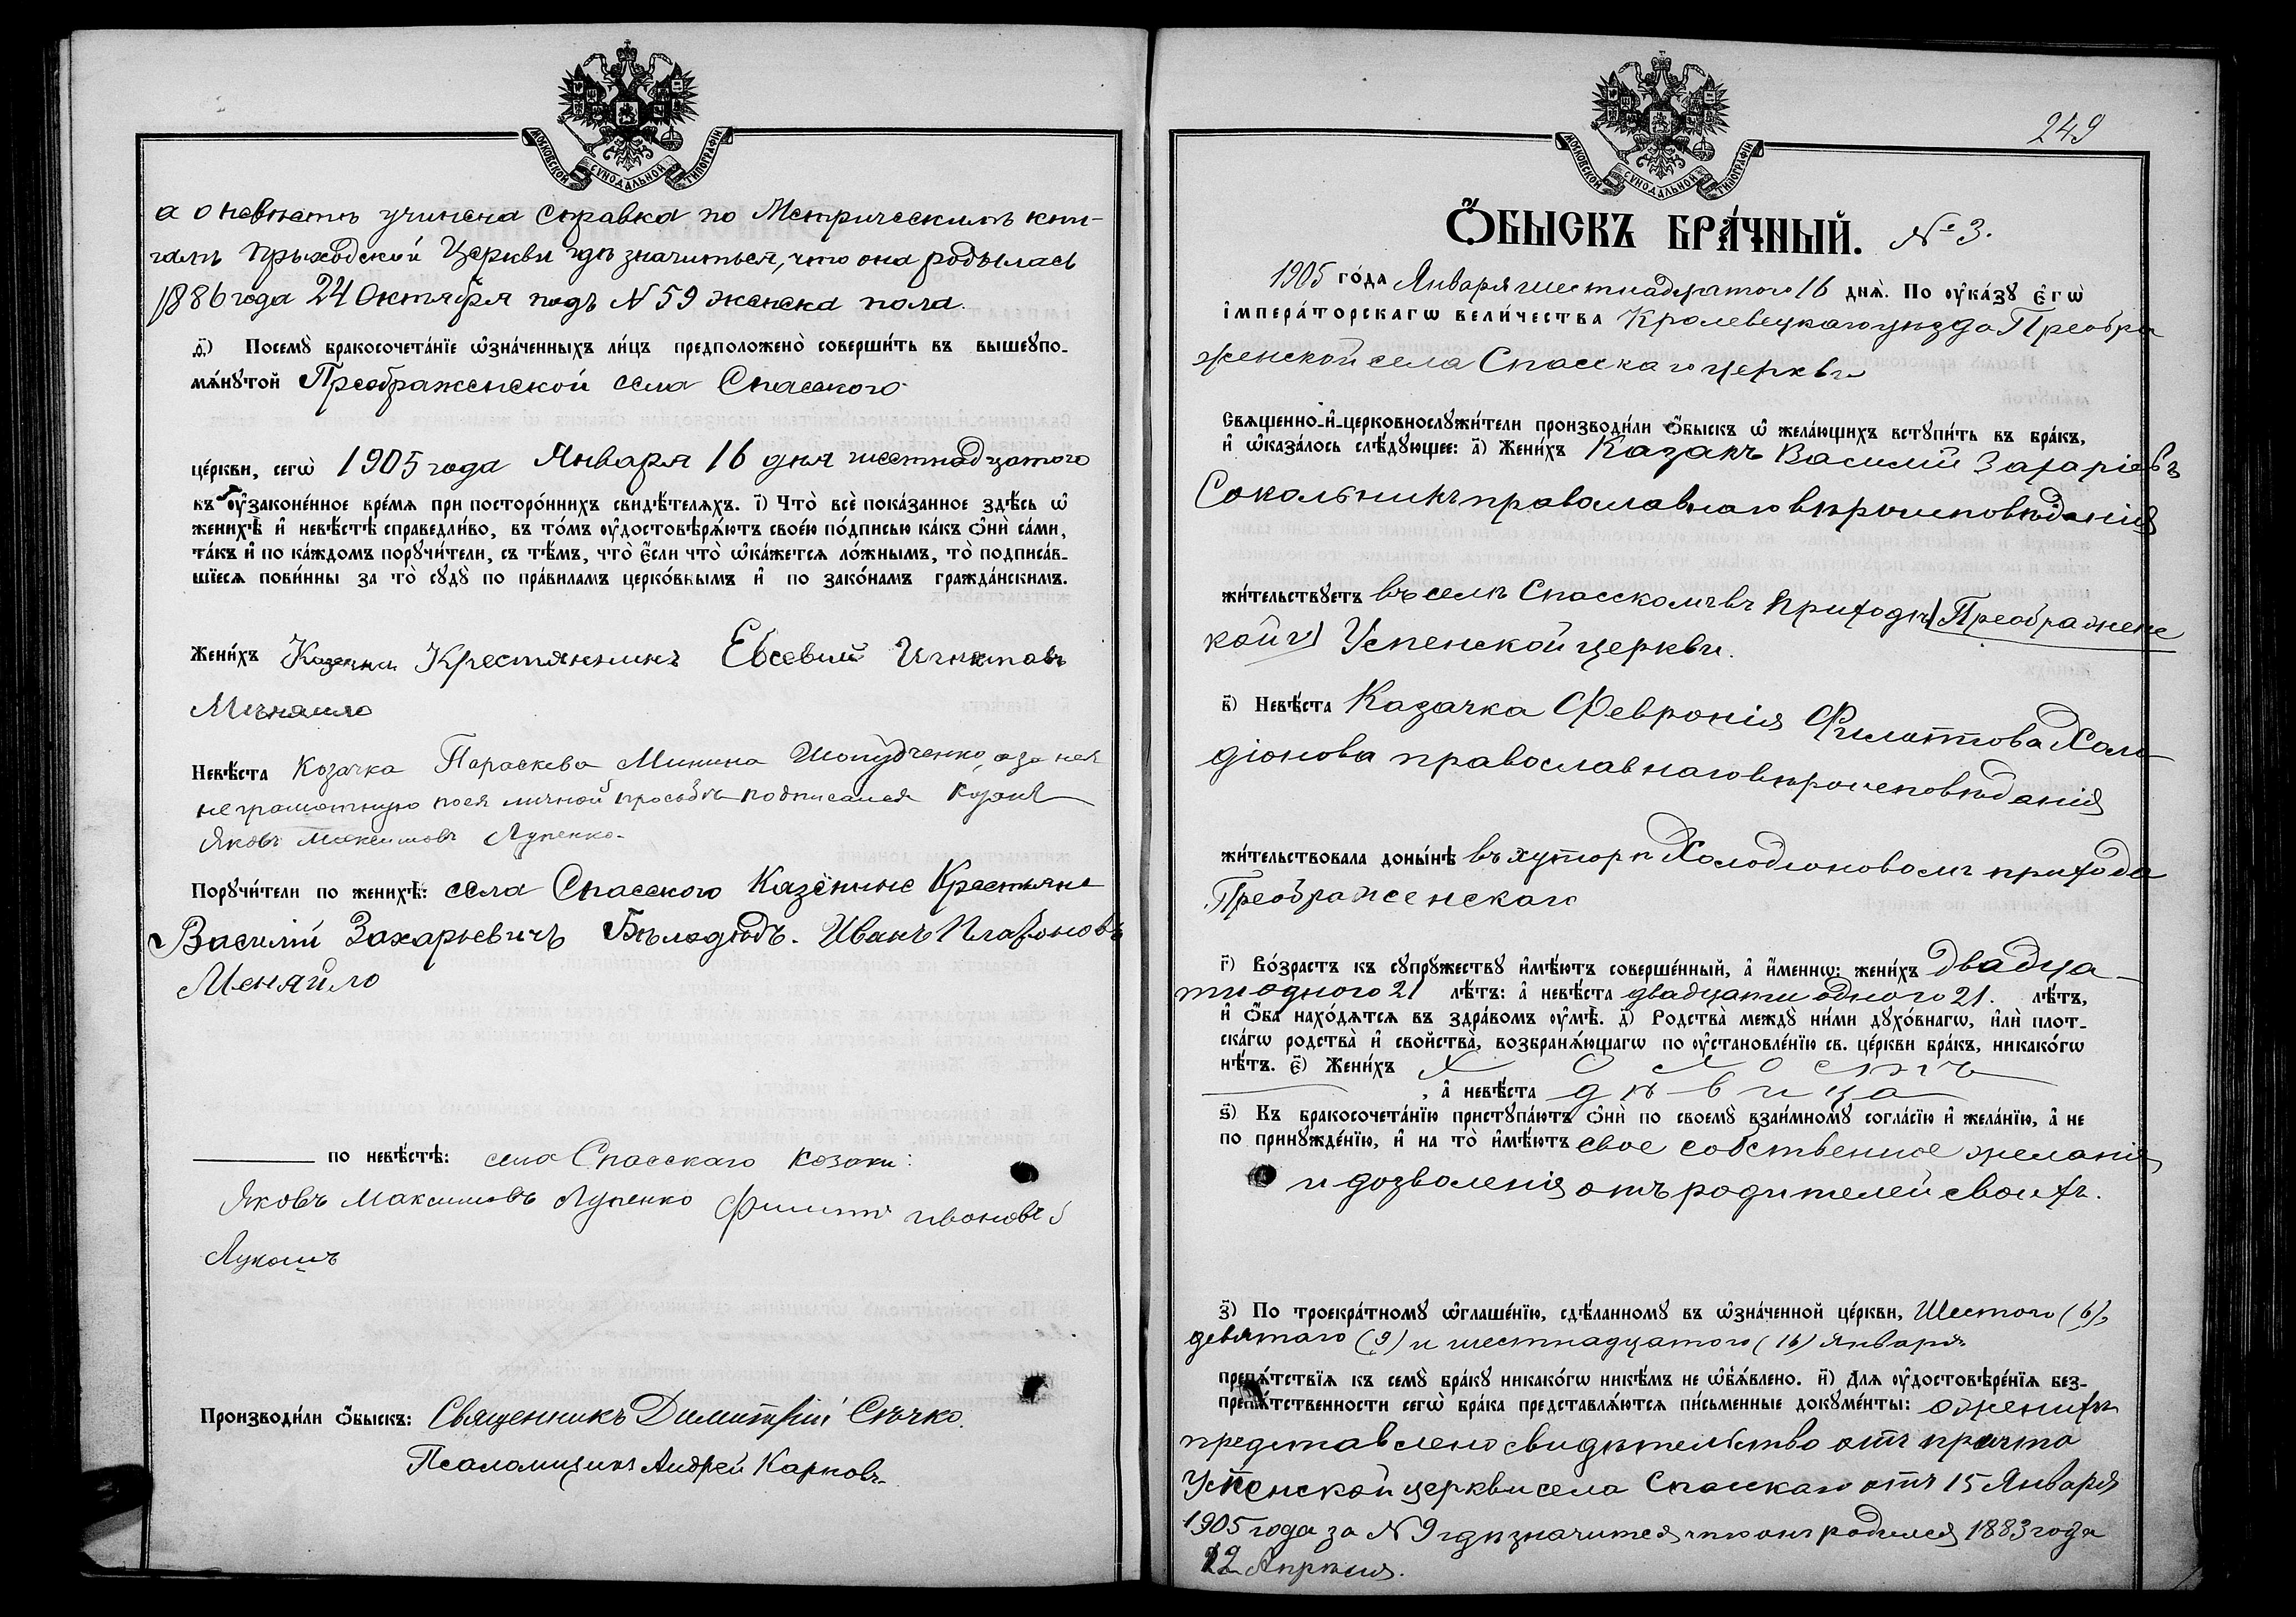 МОСКОВСКОЙ СѴНОДАЛЬНОЙ ТИПОГРАФІИ
а о невѣстѣ учинена справка по Метрическимъ кни-
гамъ Прыходской Церкви гдѣ значиться, что она родылась
1886 года 24 Октября подъ N 59 женска пола.
д҃і) Посемꙋ̀ бракосочета́нїе ѡ҆зна́ченныхъ ли́цъ предположено̀ соверши́ть въ вышеꙋпо-
мѧ́нꙋтой Преображенской села Спасского
це́ркви, сегѡ̀ 1905 года Января 16 дня шестнадцатого
въ ᲂу҆зако́не́нное вре́мѧ при посторо́ннихъ свидѣ́телѧхъ. і҃) Что̀ всѐ пока́занное здѣ́сь ѡ҆
женихѣ̀ и҆ невѣ́стѣ справедли́во, въ то́мъ ᲂу҆достовѣрѧ́ютъ свое́ю по́дписью ка́къ ѻ҆нѝ са́ми,
та́къ и҆ по ка́ждомъ порꙋчи́тели, съ тѣ́мъ, что̀ є҆́сли что̀ ѡ҆ка́жетсѧ ло́жнымъ, то̀ подписа́в-
шїесѧ пови́нны за то̀ сꙋдꙋ̀ по пра́виламъ церко́внымъ и҆ по зако́намъ гражда́нскимъ.
Жени́хъ Крестянинъ Евсевий Игнатовъ
Невѣ́ста Козачка Параскева Минина за нея
неграмотную личной просьбѣ подписался Козакъ
Яковъ Максимовъ Лупенко.
Порꙋчи́тели по женихѣ̀: села Спасского Казенние Крестьяне
Василій Захарьевичъ Бѣлодѣдъ. Иванъ Платоновъ
Меняйло
по невѣ́стѣ: села Спасскаго козаки:
Яковъ Максимовъ Лупенко Филипъ ивановъ
Лукашъ
Производи́ли ѻ҆́быскъ: Священникъ Димитрій Сѣчко.
Псаломщикъ Андрей Карповъ
МОСКОВСКОЙ СѴНОДАЛЬНОЙ ТИПОГРАФІИ
249
Ѻ҆́БЫСКЪ БРА́ЧНЫЙ. № 3.
1905 го́да Января шестнадцатого 16 днѧ̀. По ᲂу҆ка́зꙋ є҆гѡ̀
і҆мпера́торскагѡ вели́чества Кролевецкаго уѣзда Преобра
женской села Спасскаго церкви
Свѧщенно-и҆-церковнослꙋжи́тели производи́ли ѻ҆́быскъ ѡ҆ жела́ющихъ встꙋпи́ть въ бра́къ,
и҆ ѡ҆каза́лось слѣ́дꙋющее: а҃) Жени́хъ Казакъ Василій Захаріевъ
Сокольникъ православнаго вѣроисповѣданія
жи́тельствꙋетъ въ селѣ Спасскомъ въ приходѣ Преображенс
кой и Успенской церкви.
в҃) Невѣ́ста Казачка Февронія Филиппова Холо
діонова православнаго вѣроисповѣданія
жи́тельствовала доны́нѣ въ хуторѣ Холодіоновомъ прихода
Преображенскаго
г҃) Во́зрастъ къ сꙋпрꙋ́жествꙋ и҆мѣ́ютъ соверше́нный, а҆ и҆́меннѡ: жени́хъ двадца-
ти одного 21 лѣ́тъ: а҆ невѣ́ста двадцати одного 21. лѣ́тъ,
и҆ ѻ҆́ба нахо́дѧтсѧ въ здра́вомъ ᲂу҆мѣ̀. д҃) Родства̀ междꙋ̀ ни́ми дꙋхо́внагѡ, и҆лѝ плот-
ска́гѡ родства̀ и҆ сво́йства̀, возбранѧ́ющагѡ по ᲂу҆становле́нїю св. це́ркви бра́къ, никако́гѡ
нѣ́тъ. є҃) Жени́хъ Холостъ
, а҆ невѣ́ста дѣвица
ѕ҃) Къ бракосочета́нїю пристꙋпа́ютъ ѻ҆нѝ по своемꙋ̀ взаи́мномꙋ согла́сїю и҆ жела́нїю, а҆ не
по принꙋжде́нїю, и҆ на то̀ и҆мѣ́ютъ свое собственное желаніе
и дозволенія отъ родителей своихъ.
з҃) По троекра́тномꙋ ѡ҆глаше́нїю, сдѣ́ланномꙋ въ ѡ҆зна́ченной це́ркви, Шестого (6),
девятаго (9) и шестнадцатого (16) января
препѧ́тствїѧ къ семꙋ̀ бра́кꙋ никако́гѡ никѣ́мъ не ѡ҆б̾ѧ́влено. и҃) Длѧ ᲂу҆достовѣре́нїѧ без-
препѧ́тственности сегѡ̀ бра́ка представлѧ́ютсѧ пи́сьменные докꙋме́нты: о женихѣ
представлено свидѣтельство отъ причта
Успенской церкви села Спасскаго отъ 15 Января
1905 года за N 9 гдѣ значится что онъ родился 1883 года
12 Апрѣля.